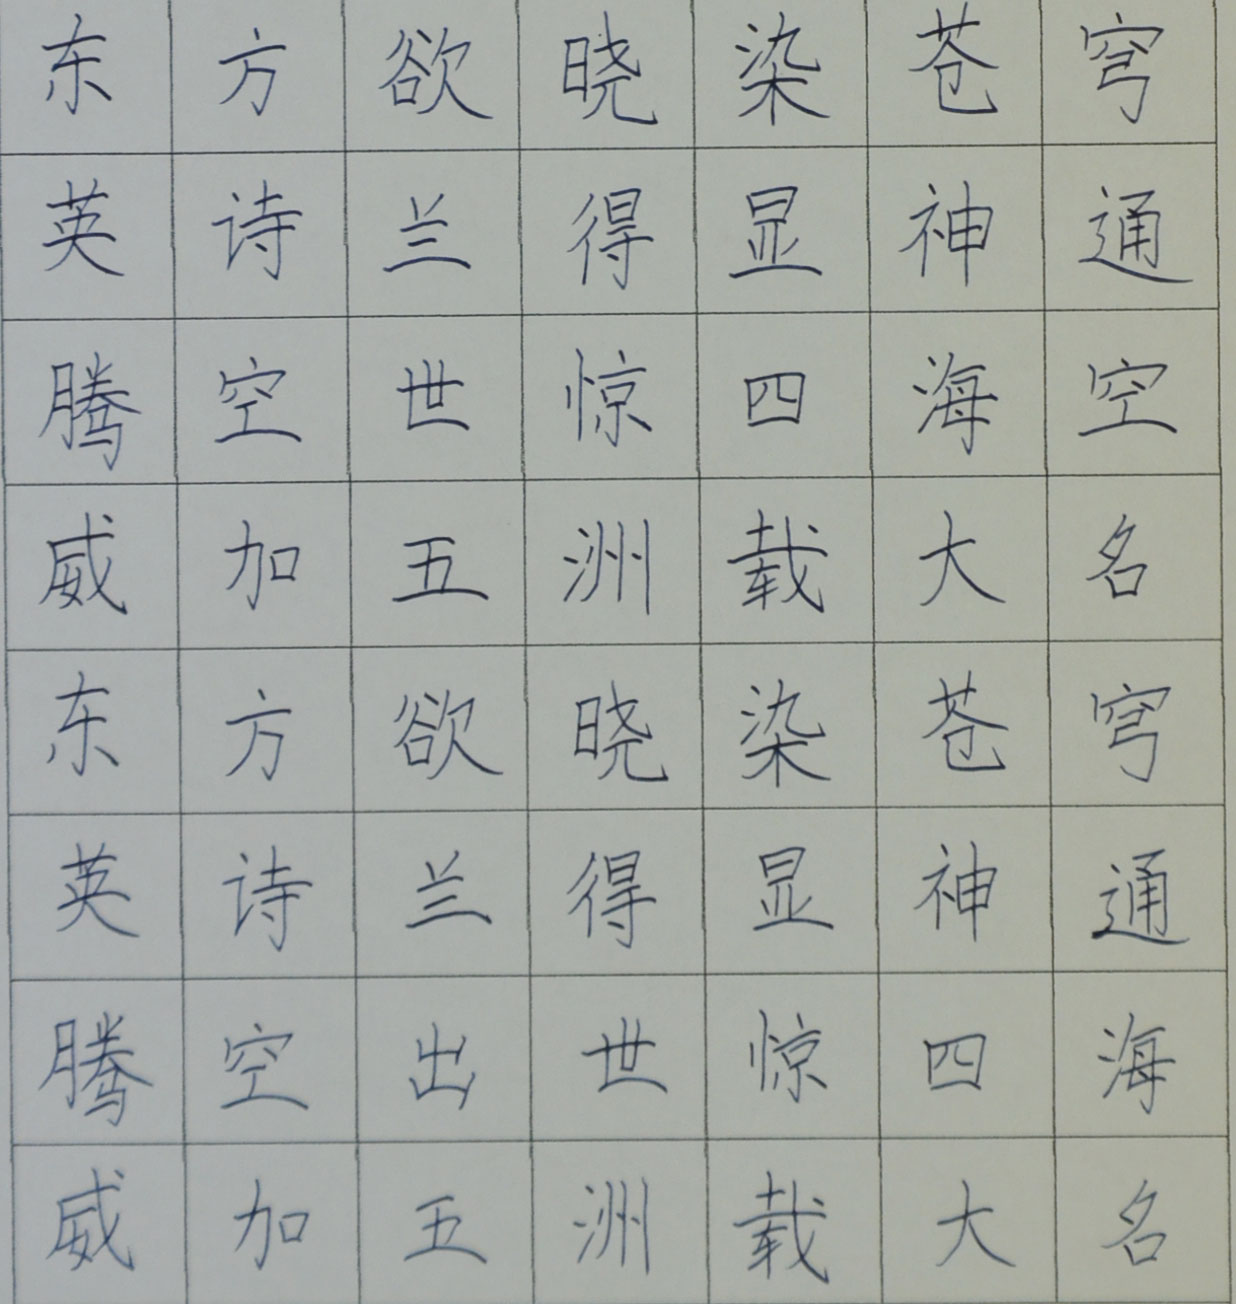 东方欲晓染苍穹
英诗兰得显神通
腾空世惊四海空
威加五洲载大名
东方欲晓染苍穹
英诗兰得显神通
腾空出世惊四海
威加五洲载大名